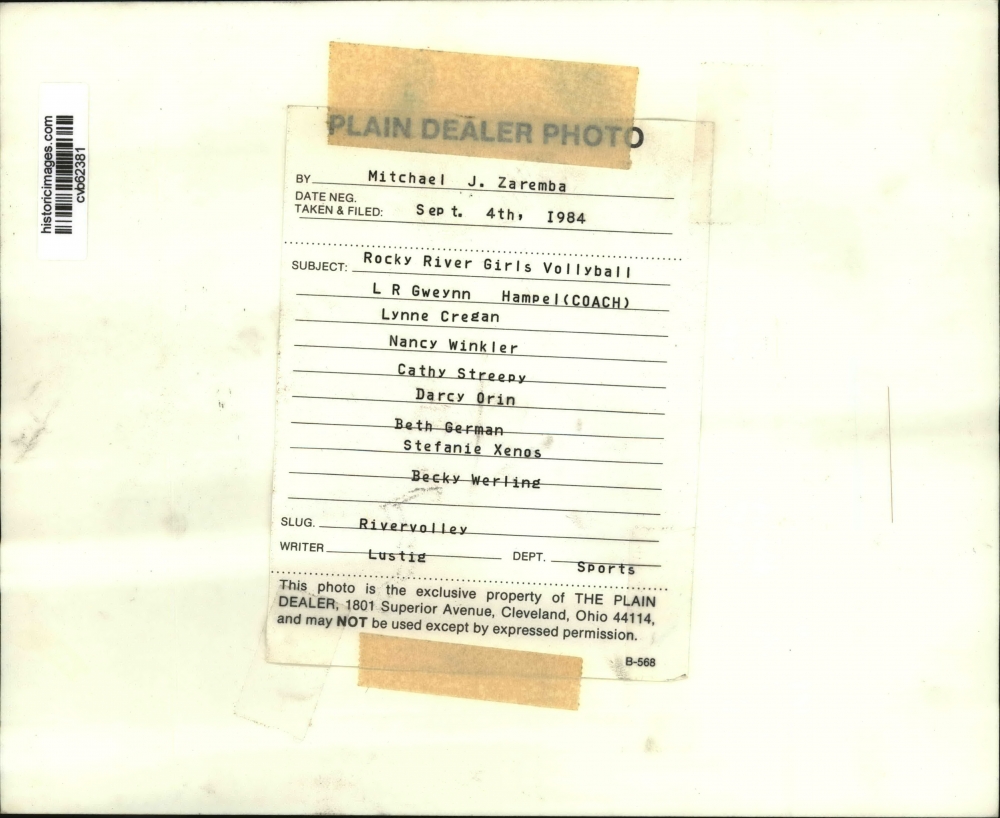 historicimages.com
cvb62381
PLAIN DEALER PHOTO
BY Mitchael J. Zaremba
DATE NEG.
TAKEN & FILED: Sept. 4th, 1984
SUBJECT: Rocky River Girls Vollyball
L R Gweynn Hampel(COACH)
Lynne Cregan
Nancy Winkler
Cathy Streepy
Darcy Orin
Beth German
Stefanie Xenos
Becky Werling
SLUG. Rivervolley
WRITER Lustig DEPT. Sports
This photo is the exclusive property of THE PLAIN
DEALER, 1801 Superior Avenue, Cleveland, Ohio 44114,
and may NOT be used except by expressed permission.
B-568